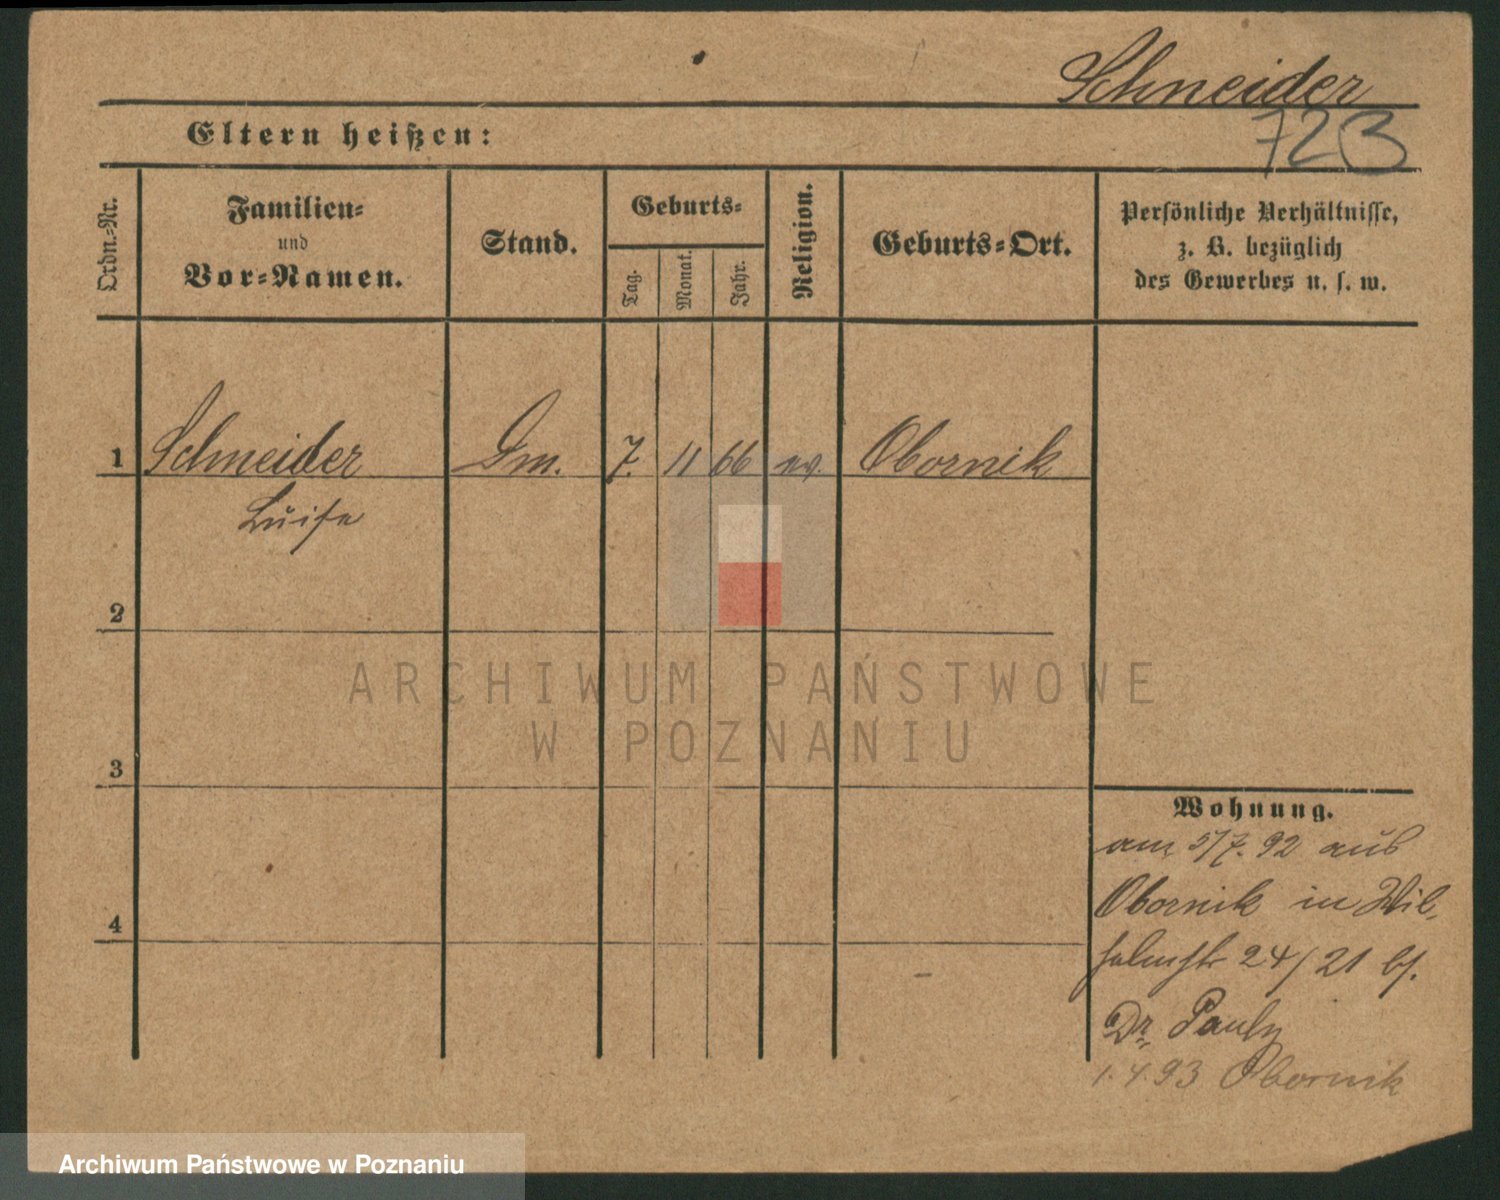 Schneider
Eltern heißen:
723
Ordn.-Nr.
Familien-
und
Vor-Namen.
Stand.
Geburts-
Tag.
Monat.
Jahr.
Religion.
Geburts-Ort.
Persönliche Verhältnisse,
z. B. bezüglich
des Gewerbes u. s. w.
1 Schneider Dm. 7. 11 66 ev. Obornik
Luise
2
3
4
Wohnung.
am 5/7. 92 aus
Obornik in Wil-
helmstr 24/21 bei
Dr. Pauly
1.4.93 Obornik
ARCHIWUM PAŃSTWOWE
W POZNANIU
Archiwum Państwowe w Poznaniu